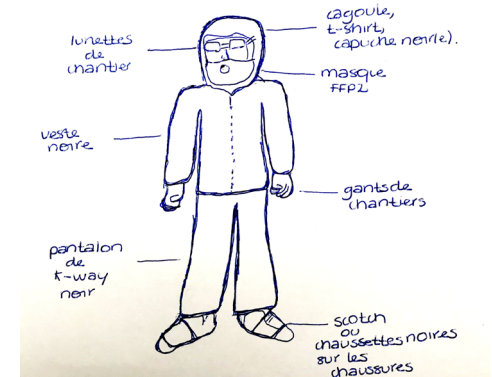 lunettes
de
chantier
cagoule,
t-shirt,
capuche noir(e).
masque
FFP2
veste
noire
gants de
chantiers
pantalon
de
k-way
noir
scotch
ou
chaussettes noires
sur les
chaussures